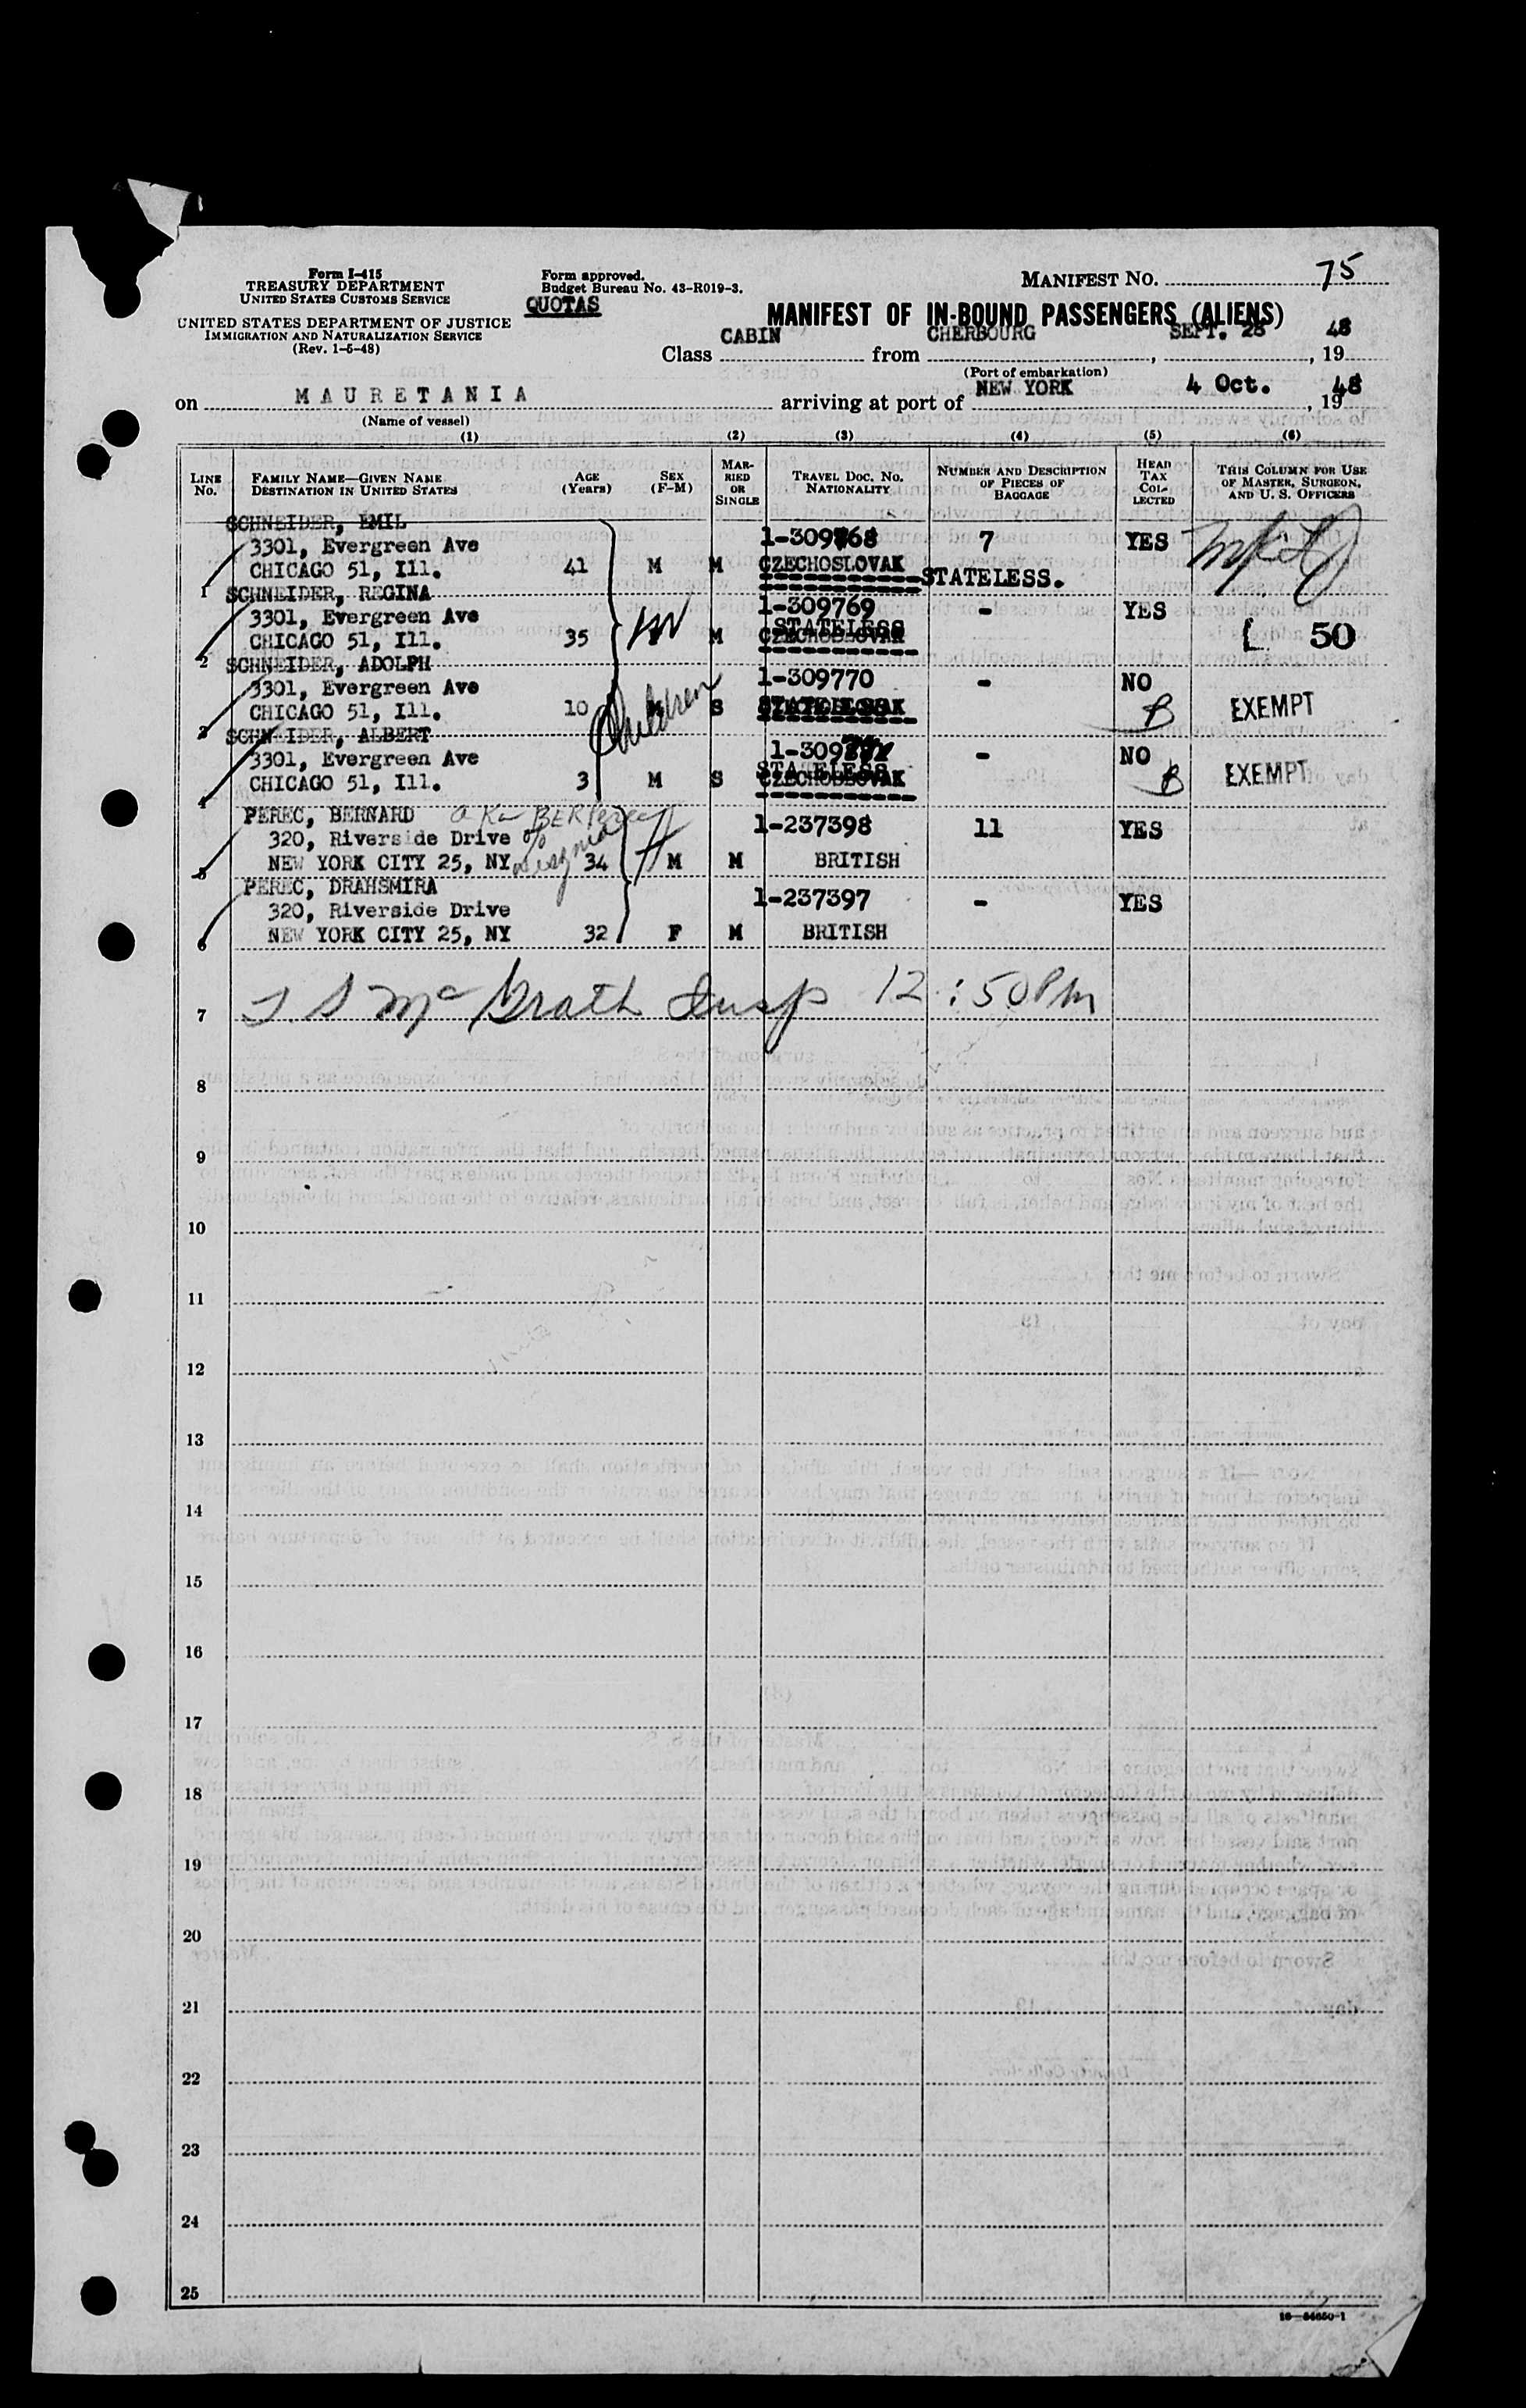 Form I-415
TREASURY DEPARTMENT
UNITED STATES CUSTOMS SERVICE
UNITED STATES DEPARTMENT OF JUSTICE
IMMIGRATION AND NATURALIZATION SERVICE
(Rev. 1-5-48)
Form approved.
Budget Bureau No. 43-R019-3.
QUOTAS
MANIFEST NO. 75
MANIFEST OF IN-BOUND PASSENGERS (ALIENS)
Class CABIN from CHERBOURG, SEPT. 28, 1948
(Port of embarkation)
on MAURETANIA arriving at port of NEW YORK 4 Oct., 1948
(Name of vessel)
(1) (2) (3) (4) (5) (6)
LINE No. FAMILY NAME—GIVEN NAME DESTINATION IN UNITED STATES AGE (Years) SEX (F-M) MARRIED OR SINGLE TRAVEL DOC. NO. NATIONALITY NUMBER AND DESCRIPTION OF PIECES OF BAGGAGE HEAD TAX COLLECTED THIS COLUMN FOR USE OF MASTER, SURGEON, AND U. S. OFFICERS
SCHNEIDER, EMIL
3301, Evergreen Ave 1-309768 7 YES
1 CHICAGO 51, Ill. 41 M M CZECHOSLOVAK STATELESS.
SCHNEIDER, REGINA
3301, Evergreen Ave 1-309769 - YES
STATELESS
2 CHICAGO 51, Ill. 35 W M CZECHOSLOVAK L 50
SCHNEIDER, ADOLPH
3301, Evergreen Ave 1-309770 - NO
3 CHICAGO 51, Ill. 10 Children S STATELESS B EXEMPT
SCHNEIDER, ALBERT
3301, Evergreen Ave - NO
STATELESS
4 CHICAGO 51, Ill. 3 M S CZECHOSLOVAK B EXEMPT
PEREC, BERNARD aka BER
320, Riverside Drive 1-237398 11 YES
5 NEW YORK CITY 25, NY 34 M M BRITISH
PEREC, DRAHSMIRA
320, Riverside Drive 1-237397 - YES
6 NEW YORK CITY 25, NY 32 F M BRITISH
7 T. S McGrath Insp 12:50 PM
8
9
10
11
12
13
14
15
16
17
18
19
20
21
22
23
24
25